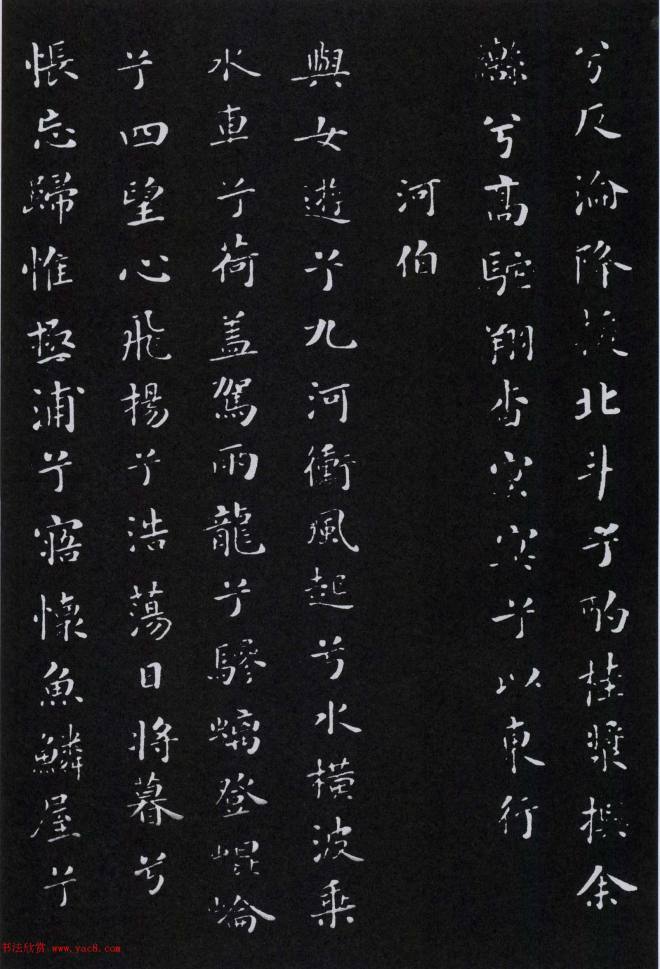 兮反淪降援北斗兮酌桂漿撰余
轡兮髙駝翔杳冥冥兮以東行
河伯
與女遊兮九河衝風起兮水橫波乘
水車兮荷盖駕兩龍兮驂螭登崐崘
兮四望心飛揚兮浩蕩日將暮兮
悵忘歸惟極浦兮寤懷魚鱗屋兮
书法欣赏 www.yac8.com